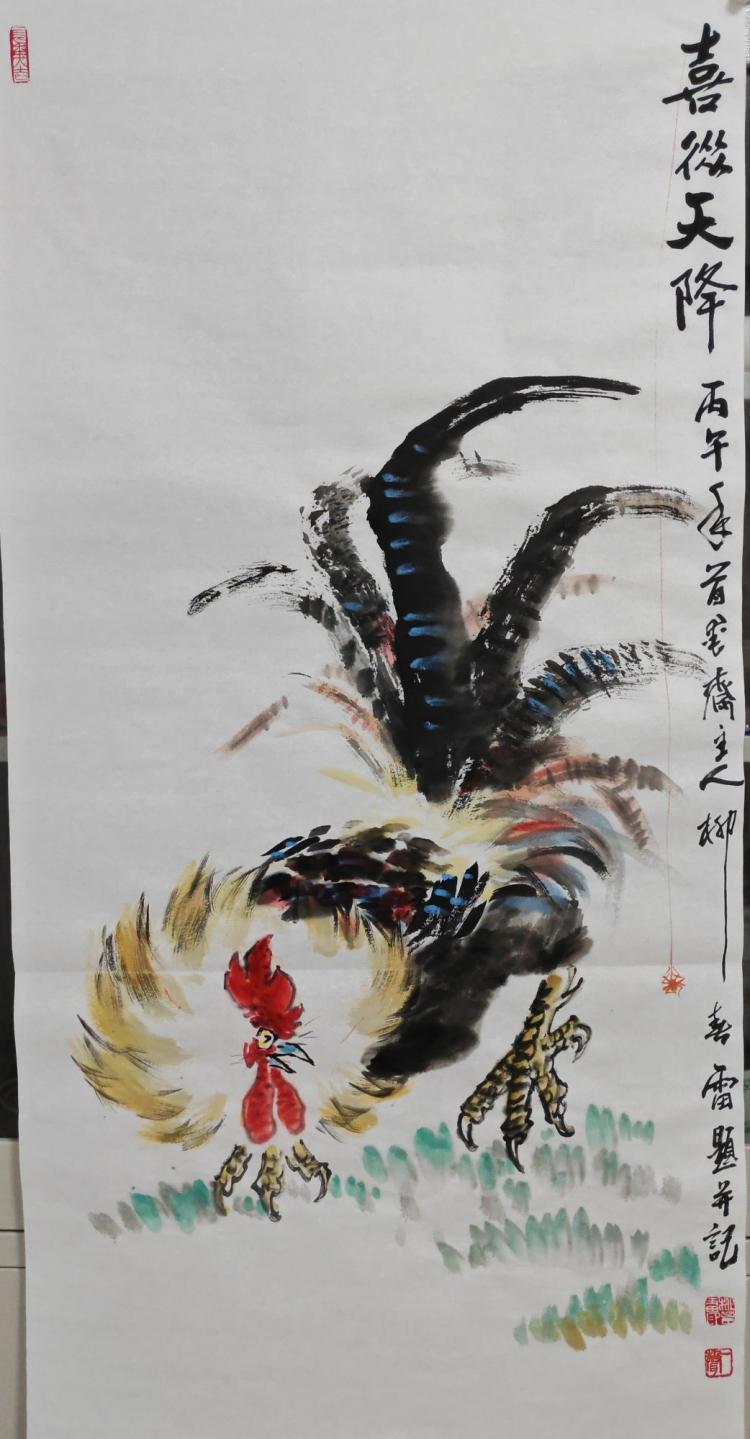 喜從天降
丙午年首墨齋主人柳春雷題并記